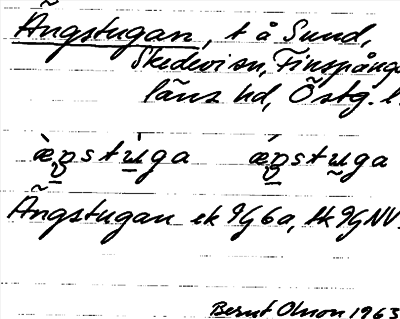 Ängstugan, t å Sund,
Skedevi sn, Finspångs
läns hd, Östg. l.
æ̀ŋstùga ǽŋstuga
Ängstugan ek 9G6a, tk 9GNV.
Bernt Olson 1963